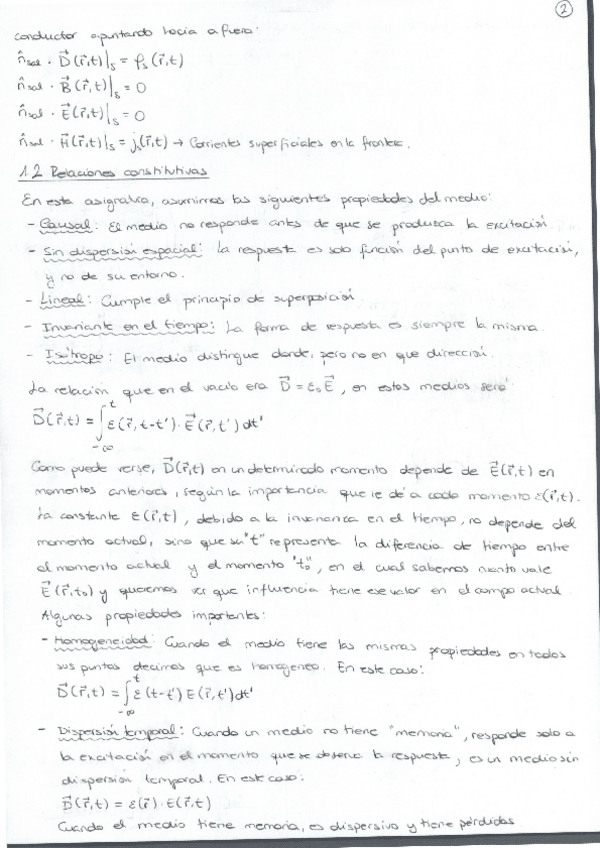 2
conductor apuntando hacia afuera:
n̂sal · D⃗(r⃗,t)|s = ρs(r⃗,t)
n̂sal · B⃗(r⃗,t)|s = 0
n̂sal · E⃗(r⃗,t)|s = 0
n̂sal · H⃗(r⃗,t)|s = js(r⃗,t) → Corrientes superficiales en la frontera.
1.2 Relaciones constitutivas
En esta asignatura, asumimos las siguientes propiedades del medio:
- Causal: El medio no responde antes de que se produzca la excitación
- Sin dispersión espacial: La respuesta es solo función del punto de excitación,
y no de su entorno.
- Lineal: Cumple el principio de superposición
- Invariante en el tiempo: La forma de respuesta es siempre la misma.
- Isótropo: El medio distingue donde, pero no en que dirección.
La relación que en el vacío era D⃗ = ε₀E⃗, en estos medios será:
D⃗(r⃗,t) = ∫_{-∞}^{t} ε(r⃗,t-t')·E⃗(r⃗,t')dt'
Como puede verse, D⃗(r⃗,t) en un determinado momento depende de E⃗(r⃗,t) en
momentos anteriores, según la importancia que le dé a cada momento ε(r⃗,t).
La constante ε(r⃗,t), debido a la invarianza en el tiempo, no depende del
momento actual, sino que su "t" representa la diferencia de tiempo entre
el momento actual y el momento "t₀", en el cual sabemos cuánto vale
E⃗(r⃗,t₀) y queremos ver que influencia tiene ese valor en el campo actual.
Algunas propiedades importantes:
- Homogeneidad: Cuando el medio tiene las mismas propiedades en todos
sus puntos decimos que es homogeneo. En este caso:
D⃗(r⃗,t) = ∫_{-∞}^{t} ε(t-t') E(r⃗,t')dt'
- Dispersión temporal: Cuando un medio no tiene "memoria", responde solo a
la excitación en el momento que se observa la respuesta, es un medio sin
dispersión temporal. En este caso:
D⃗(r⃗,t) = ε(r⃗)·E(r⃗,t)
Cuando el medio tiene memoria, es dispersivo y tiene pérdidas